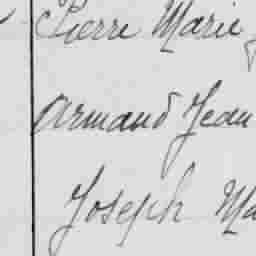 Pierre Marie
Armand Jean
Joseph Ma